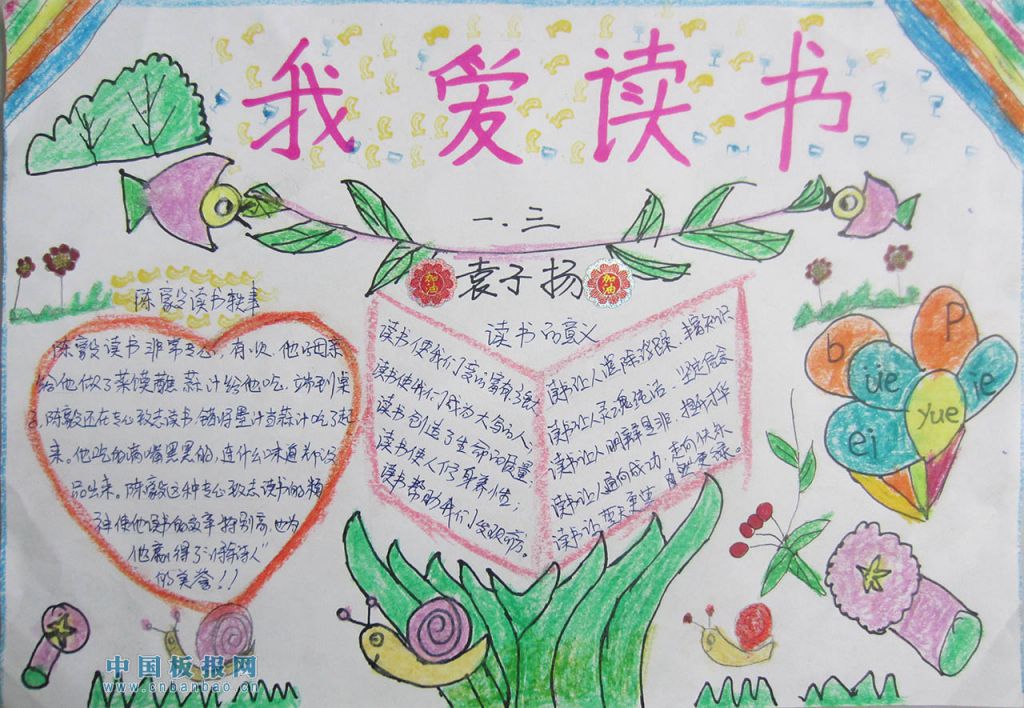 我爱读书
一.三
袁子扬
加油
加油
陈毅读书轶事
陈毅读书非常专心,有一次,他的母亲
给他做了菜馍蘸蒜汁给他吃,端到桌
陈毅还在专心致志读书错将墨汁当蒜汁吃了起
来。他吃的满嘴黑黑的,连什么味道都没
品出来。陈毅这种专心致志读书的精
神使他读书的效率特别高也为
他赢得了“将军诗人”
的美誉!!
读书的意义
读书使我们成为大写的人;
读书创造了生命的质量;
读书使人修身养性;
读书帮助我们发现
读书让人消除浮躁、丰富知识
读书让人灵魂纯洁、坚定信念
读书让人明辨是非、提升才华
读书让人通向成功、走向快乐
读书让
b
p
üe
ie
yue
ei
中国板报网
www.cnbanbao.cn